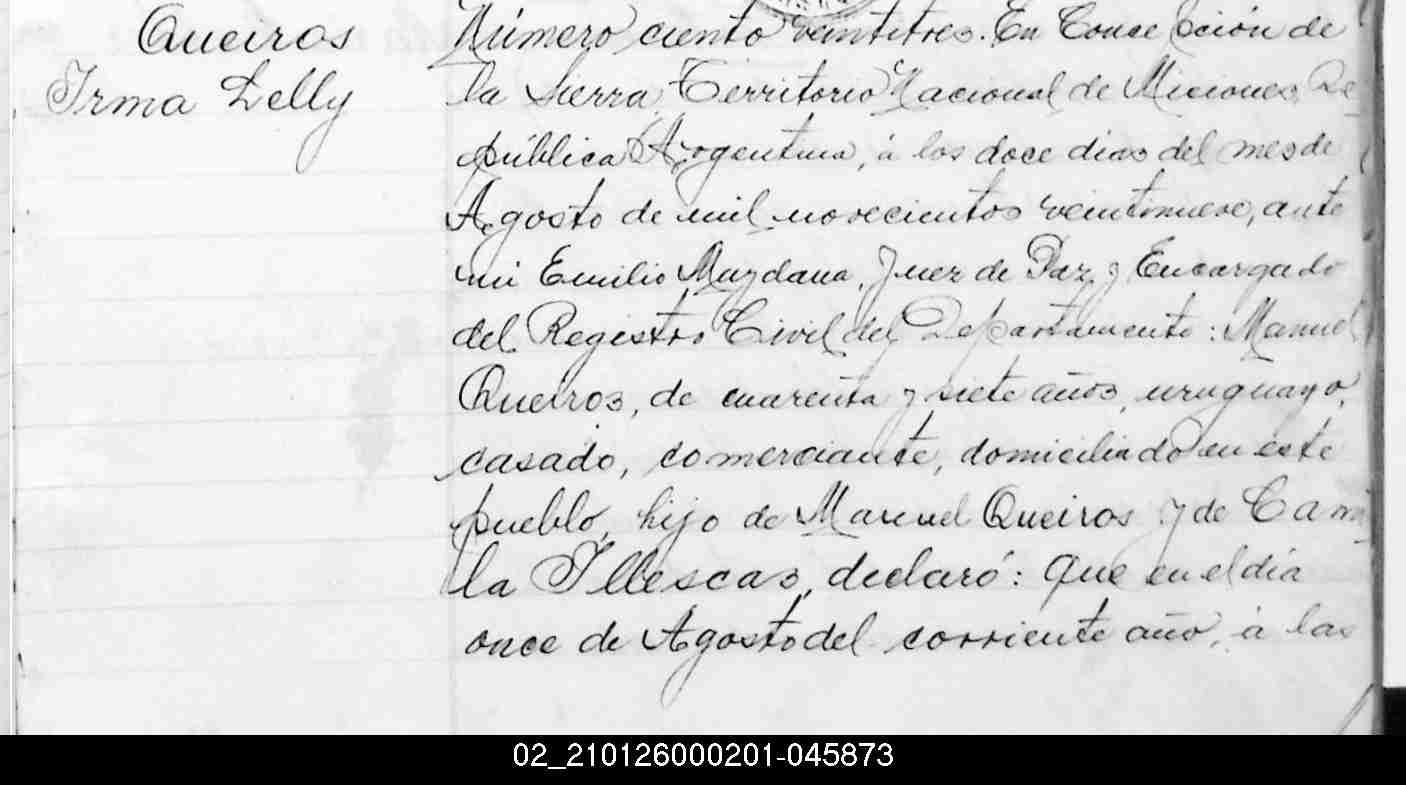 Queiros
Irma Lelly
Número ciento veintitres. En Concepción de
la Sierra, Territorio Nacional de Miciones, Re-
pública Argentina, á los doce dias del mes de
Agosto de mil novecientos veintinueve, ante
mi Emilio Mazdana, Juez de Paz y Encargado
del Registro Civil del Departamento: Manuel
Queiros, de cuarenta y siete años, uruguayo,
casado, comerciante, domiciliado en este
pueblo, hijo de Manuel Queiros y de Cami-
la Illescas, declaró: Que en el día
once de Agosto del corriente año, á las
02_210126000201-045873